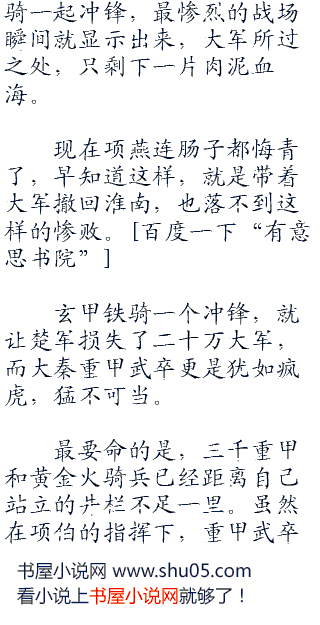 骑一起冲锋，最惨烈的战场
瞬间就显示出来，大军所过
之处，只剩下一片肉泥血
海。
现在项燕连肠子都悔青
了，早知道这样，就是带着
大军撤回淮南，也落不到这
样的惨败。[百度一下“有意
思书院”]
玄甲铁骑一个冲锋，就
让楚军损失了二十万大军，
而大秦重甲武卒更是犹如疯
虎，猛不可当。
最要命的是，三千重甲
和黄金火骑兵已经距离自己
站立的井栏不足一里。虽然
在项伯的指挥下，重甲武卒
书屋小说网 www.shu05.com
看小说上书屋小说网就够了！